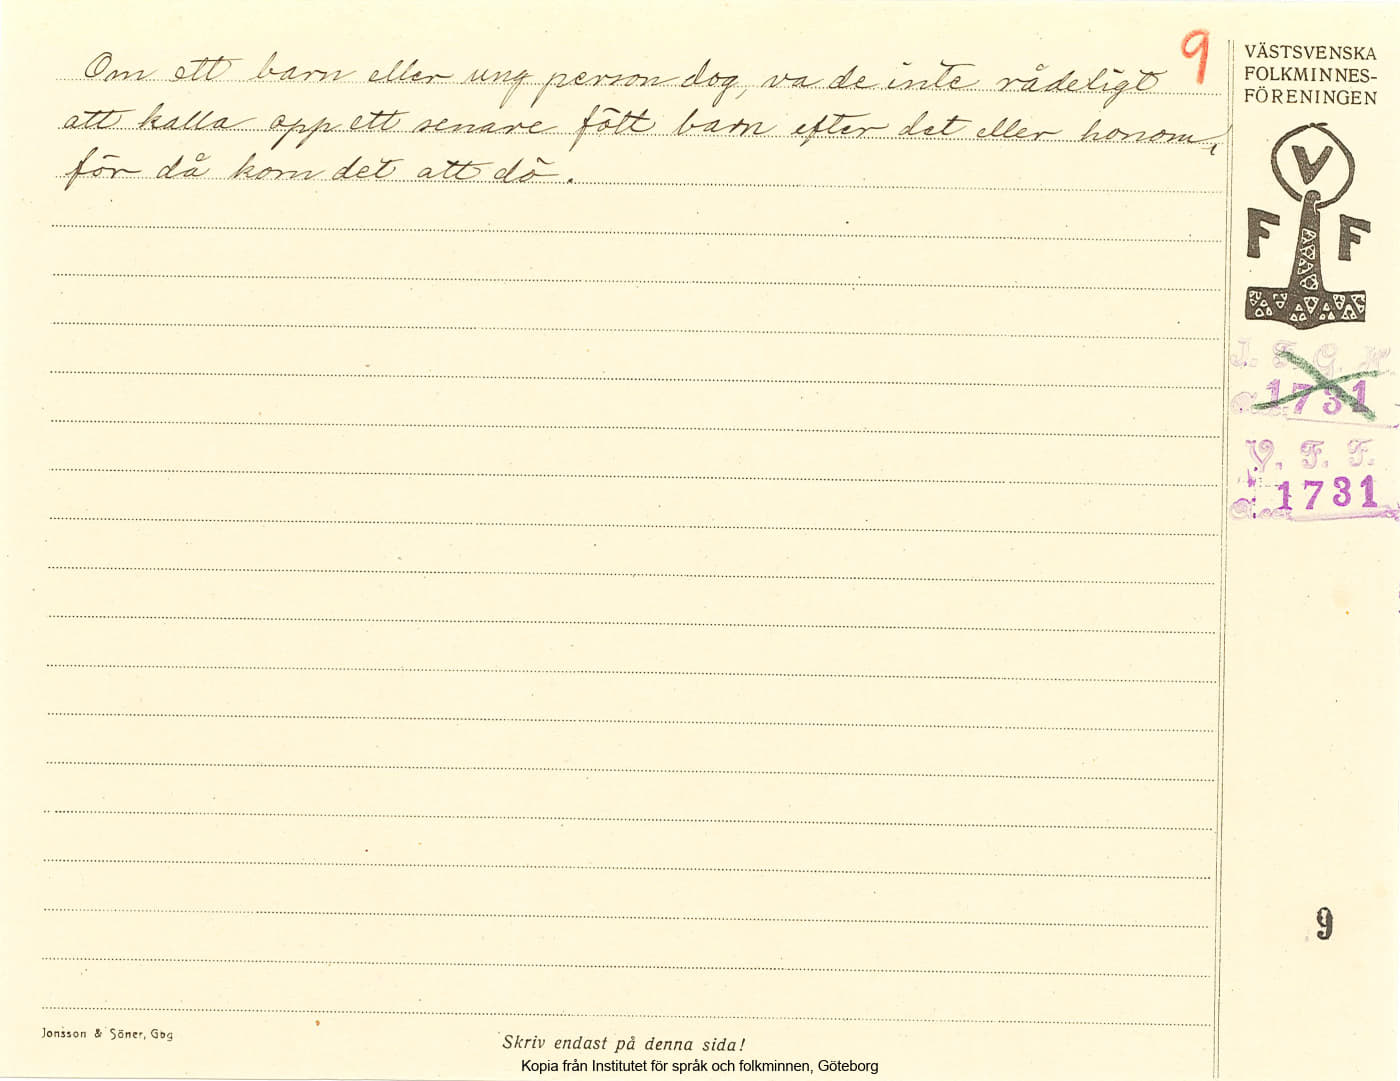 9
Om ett barn eller ung person dog, va de inte rådeligt
att kalla opp ett senare fött barn efter det eller honom,
för då kom det att dö.
VÄSTSVENSKA
FOLKMINNES-
FÖRENINGEN
V
F F
I. F. G. H.
Acc. 1731
V. F. F.
Acc. 1731
9
Jonsson & Söner, Gbg
Skriv endast på denna sida!
Kopia från Institutet för språk och folkminnen, Göteborg